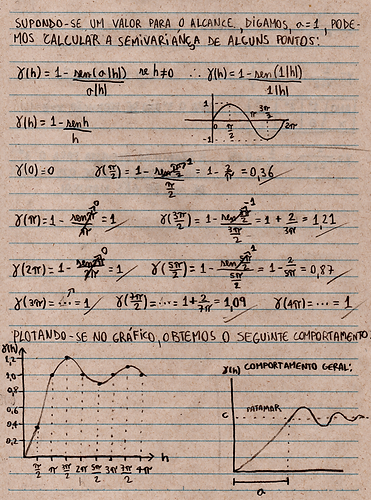 SUPONDO-SE UM VALOR PARA O ALCANCE, DIGAMOS, a=1, PODE-
MOS CALCULAR A SEMIVARIÂNÇA DE ALGUNS PONTOS:
γ(h) = 1 - sen(a|h|)/a|h| se h≠0 ∴ γ(h) = 1 - sen(1|h|)/1|h|
γ(h) = 1 - sen h/h
1 0 π/2 π 3π/2 2π -1
γ(0) = 0 γ(π/2) = 1 - sen π/2 1/π/2 = 1 - 2/π = 0,36
γ(π) = 1 - sen π 0/π = 1 γ(3π/2) = 1 - sen 3π/2 -1/3π/2 = 1 + 2/3π = 1,21
γ(2π) = 1 - sen 2π 0/2π = 1 γ(5π/2) = 1 - sen 5π/2 1/5π/2 = 1 - 2/5π = 0,87
γ(3π) = ... = 1 γ(7π/2) = ... = 1 + 2/7π = 1,09 γ(4π) = ... = 1
PLOTANDO-SE NO GRÁFICO, OBTEMOS O SEGUINTE COMPORTAMENTO:
γ(h)
1,2
1,0
0,8
0,6
0,4
0,2
π/2 π 3π/2 2π 5π/2 3π 7π/2 4π h
γ(h) COMPORTAMENTO GERAL:
C PATAMAR
a